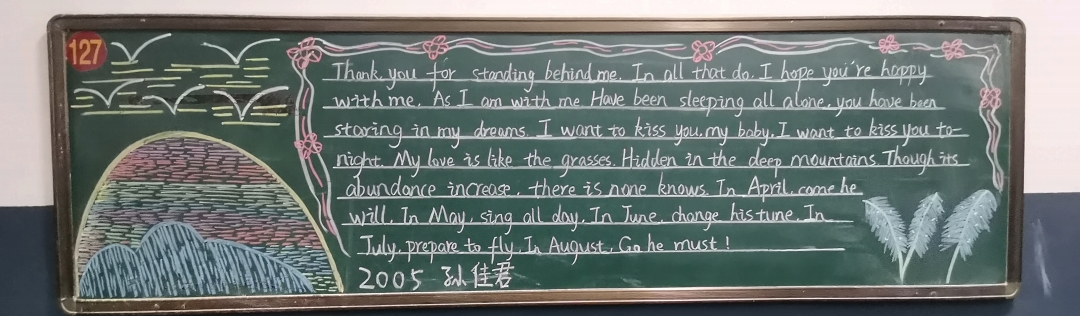 127
Thank you for standing behind me. In all that do. I hope you're happy
with me. As I am with me Have been sleeping all alone. you have been
staring in my dreams. I want to kiss you. my baby. I want to kiss you to-
night. My love is like the grasses. Hidden in the deep mountains. Though its
abundance increase, there is none knows. In April. come he
will. In May. sing all day. In June. change his tune. In
July. prepare to fly. In August. Go he must!
2005 孙佳君